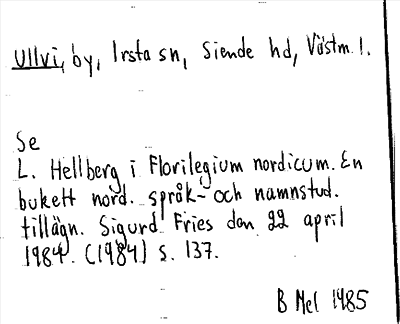 Ullvi, by, Irsta sn, Siende hd, Västm. l.
Se
L. Hellberg i Florilegium nordicum. En
bukett nord. språk- och namnstud.
tillägn. Sigurd Fries den 22 april
1984. (1984) s. 137.
B Mel 1985